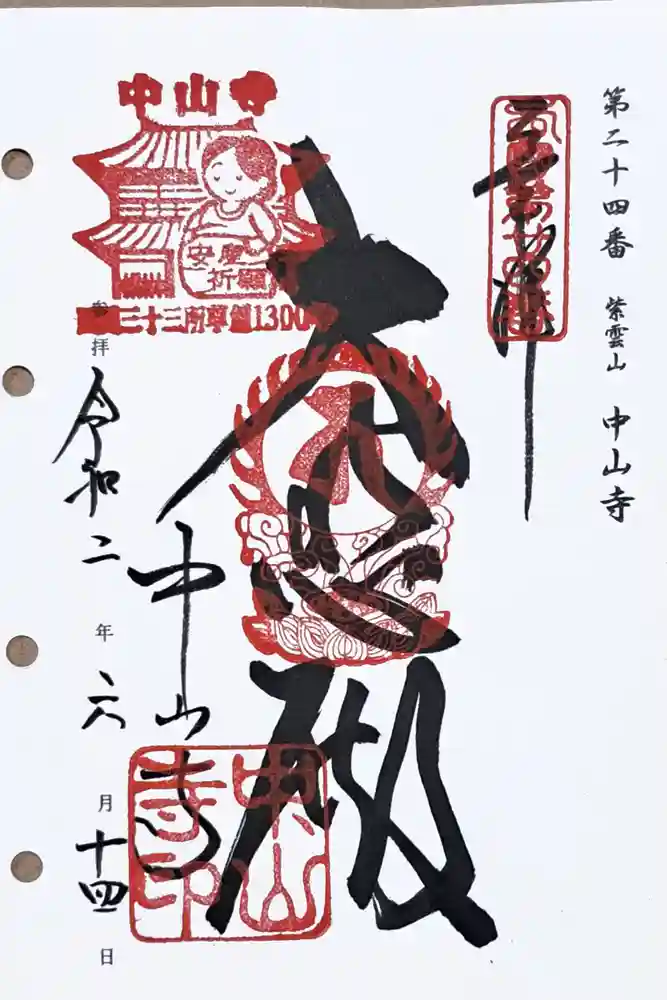 第二十四番 紫雲山 中山寺
奉拝
大悲殿
中山寺
安産
祈願
三十三所草創1300
中山寺
中山寺印
参拝 令和二年六月十四日